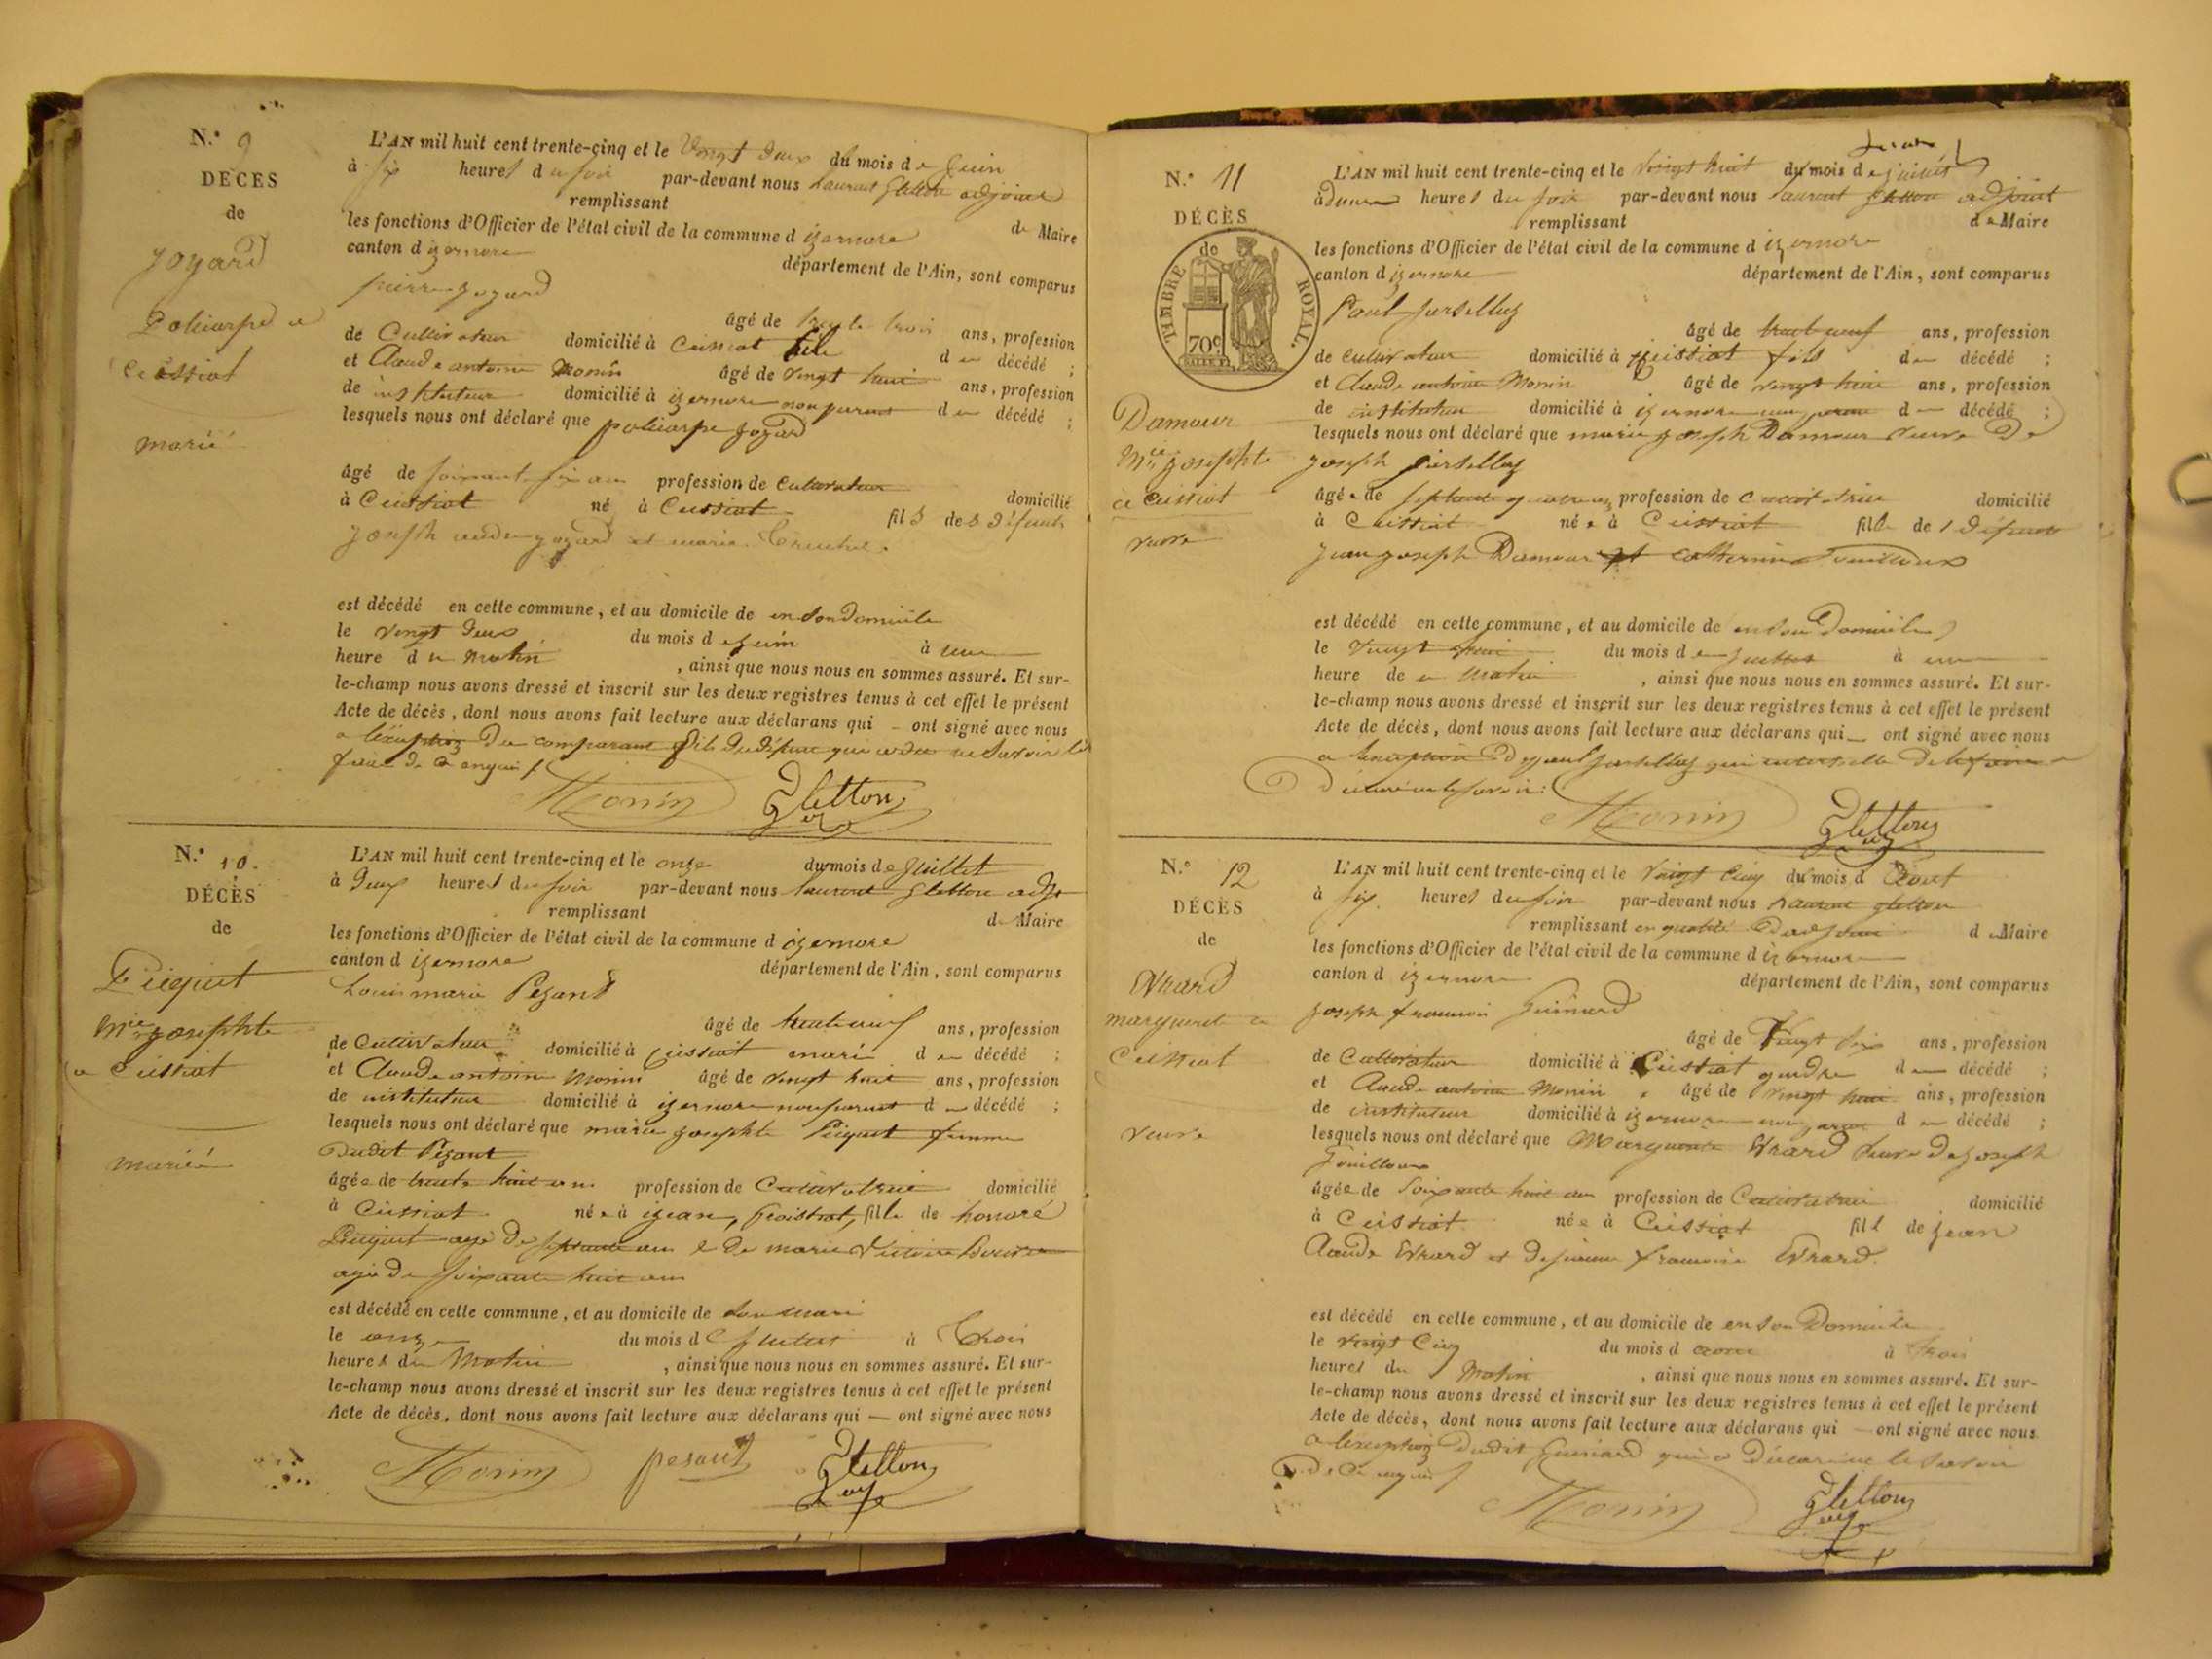 N.° 9
DÉCÈS
de
Joyard
Policarpe a
Ceissiat
marié
L'AN mil huit cent trente-cinq et le Vingt deux du mois de Juin
à six heures du soir par-devant nous Laurent Gletton adjoint
remplissant de Maire
les fonctions d'Officier de l'état civil de la commune d izernore
canton d izernore département de l'Ain, sont comparus
pierre Joyard
âgé de trente trois ans, profession
de Cultivateur domicilié à Ceissiat fils du décédé ;
et Claude antoine Monin âgé de vingt huit ans, profession
de instituteur domicilié à izernore non parent du décédé ;
lesquels nous ont déclaré que policarpe Joyard
âgé de soixante six ans profession de Cultivateur domicilié
à Ceissiat né à Ceissiat fils des défunts
Joseph Joyard et marie
est décédé en cette commune, et au domicile de en son Domicile
le vingt deux du mois de Juin à une
heure du matin, ainsi que nous nous en sommes assuré. Et sur-
le-champ nous avons dressé et inscrit sur les deux registres tenus à cet effet le présent
Acte de décès, dont nous avons fait lecture aux déclarans qui ont signé avec nous
a l'exception du comparant fils du défunt qui a dit ne savoir le
faire de ce enquis
Monin Gletton
N.° 10.
DÉCÈS
de
Picquet
Mie Josephte
a Ceissiat
mariée
L'AN mil huit cent trente-cinq et le onze du mois de Juillet
à deux heures du soir par-devant nous Laurent Gletton adjt
remplissant de Maire
les fonctions d'Officier de l'état civil de la commune d izernore
canton d izernore département de l'Ain, sont comparus
Louis marie Pezant
âgé de trente neuf ans, profession
de Cultivateur domicilié à Ceissiat mari du décédé ;
et Claude antoine Monin âgé de vingt huit ans, profession
de instituteur domicilié à izernore non parent du décédé ;
lesquels nous ont déclaré que marie Josephte Picquet femme
Dudit Pezant
âgée de trente huit ans profession de Cultivatrice domicilié
à Ceissiat née à fille de honoré
Picquet agé de septante ans & de marie Victoire
agée de soixante huit ans
est décédé en cette commune, et au domicile de son mari
le onze du mois de Juillet à trois
heures du Matin, ainsi que nous nous en sommes assuré. Et sur-
le-champ nous avons dressé et inscrit sur les deux registres tenus à cet effet le présent
Acte de décès, dont nous avons fait lecture aux déclarans qui — ont signé avec nous
Monin pesant Gletton
N.° 11
DÉCÈS
de
TIMBRE ROYAL
70c
Damour
Mie Josephte
à Ceissiat
veuve
L'AN mil huit cent trente-cinq et le vingt huit du mois de juillet
à une heures du soir par-devant nous Laurent Gletton adjoint
remplissant de Maire
les fonctions d'Officier de l'état civil de la commune d izernore
canton d izernore département de l'Ain, sont comparus
Paul
âgé de trente neuf ans, profession
de cultivateur domicilié à Ceissiat fils du décédé ;
et Claude antoine Monin âgé de vingt huit ans, profession
de instituteur domicilié à izernore non parent du décédé ;
lesquels nous ont déclaré que marie Joseph Damour veuve De
Joseph
âgée de septante profession de Cultivatrice domicilié
à Ceissiat née à Ceissiat fille des Défunts
Jean Joseph Damour et Catherine
est décédé en cette commune, et au domicile de en son Domicile
le vingt huit du mois de juillet à une
heure de du matin, ainsi que nous nous en sommes assuré. Et sur-
le-champ nous avons dressé et inscrit sur les deux registres tenus à cet effet le présent
Acte de décès, dont nous avons fait lecture aux déclarans qui — ont signé avec nous
a l'exception de paul
Déclaré ne le savoir
Monin Gletton
N.° 12
DÉCÈS
de
Evrard
marguerite a
Ceissiat
veuve
L'AN mil huit cent trente-cinq et le vingt cinq du mois d Aout
à six heures du soir par-devant nous Laurent Gletton
remplissant en qualité D'adjoint de Maire
les fonctions d'Officier de l'état civil de la commune d izernore
canton d izernore département de l'Ain, sont comparus
Joseph francois Guinard
âgé de Vingt six ans, profession
de Cultivateur domicilié à Ceissiat gendre du décédé ;
et Claude antoine Monin, âgé de vingt huit ans, profession
de instituteur domicilié à izernore non parent du décédé ;
lesquels nous ont déclaré que Marguerite Evrard veuve de Joseph
âgée de soixante huit ans profession de Cultivatrice domicilié
à Ceissiat née à Ceissiat fille de Jean
Claude Evrard et de francoise Evrard.
est décédé en cette commune, et au domicile de en son Domicile
le vingt cinq du mois d aout à trois
heures du Matin, ainsi que nous nous en sommes assuré. Et sur-
le-champ nous avons dressé et inscrit sur les deux registres tenus à cet effet le présent
Acte de décès, dont nous avons fait lecture aux déclarans qui — ont signé avec nous
a l'exception dudit Guinard qui a Déclaré ne le savoir
de ce enquis
Monin Gletton